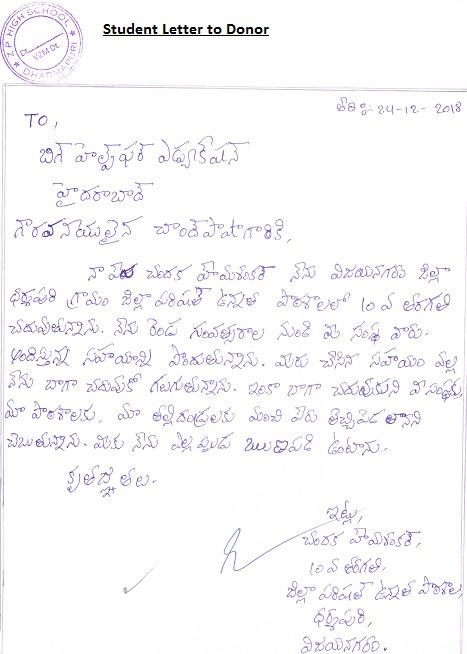 Z P HIGH SCHOOL
Dt.
VZM Dt.
DHARMAPURI
Student Letter to Donor
తేది:- 24-12-2018
TO,
బిగ్ హెల్ప్ ఫర్ ఎడ్యుకేషన్
హైదరాబాద్
గౌరవనీయులైన చాంద్ పాషా గారికి,
నా పేరు చందక హేమశంకర్ నేను విజయనగరం జిల్లా
ధర్మపురి గ్రామం జిల్లా పరిషత్ ఉన్నత పాఠశాలలో 10 వ తరగతి
చదువుతున్నాను. నేను రెండు సంవత్సరాల నుండి మీ సంస్థ వారు.
అందిస్తున్న సహాయాన్ని పొందుతున్నాను. మీరు చేసిన సహాయం వల్ల
నేను బాగా చదువుకో గలుగుతున్నాను. ఇంకా బాగా చదువుకుని మీ సంస్థకు,
మా పాఠశాలకు, మా తల్లిదండ్రులకు మంచి పేరు తెచ్చిపెడతానని
చెబుతున్నాను. మీకు నేను ఎల్లప్పుడు ఋణపడి ఉంటాను.
కృతజ్ఞతలు.
ఇట్లు,
చందక హేమశంకర్,
10 వ తరగతి,
జిల్లా పరిషత్ ఉన్నత పాఠశాల,
ధర్మపురి,
విజయనగరం.